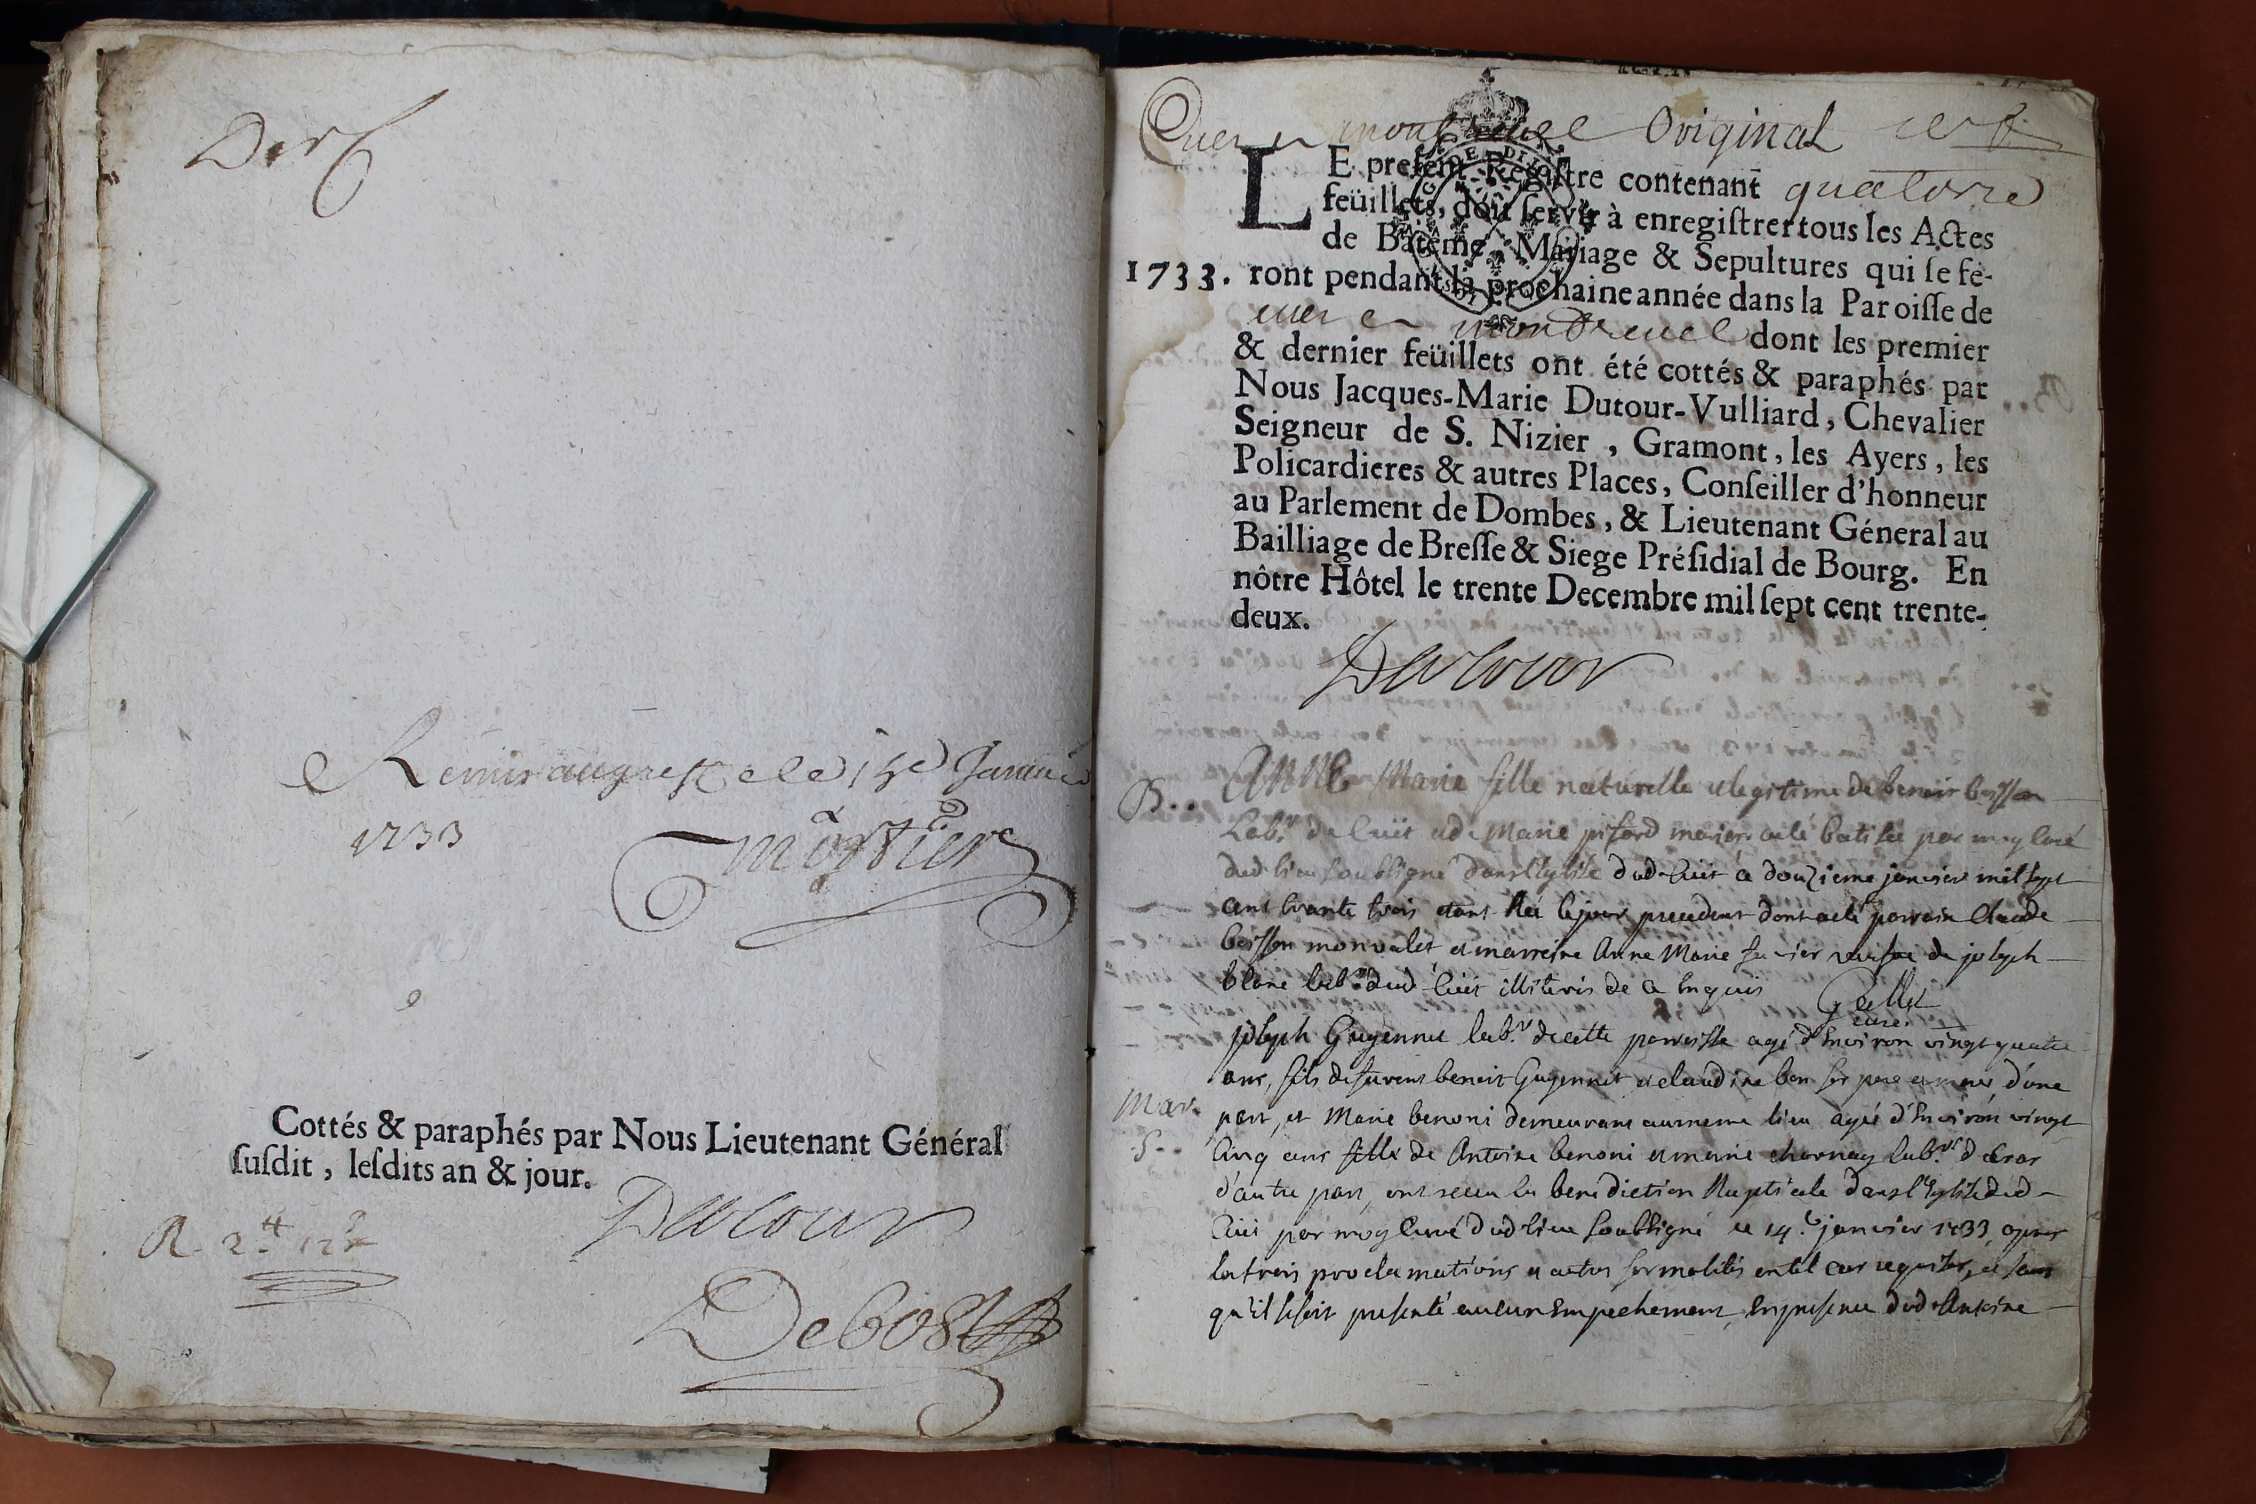 Der
Remis au greffe le 15e Janvier
1733
Mortier
Cottés & paraphés par Nous Lieutenant Général
ſuſdit, leſdits an & jour.
Dutour
R 2 12
Debost
Cuet en montrevel Original
LE preſent Regiſtre contenant quatorze
feüillets, doit ſervir à enregiſtrer tous les Actes
de Batême, Mariage & Sepultures qui ſe fe-
1733. ront pendant la prochaine année dans la Paroiſſe de
cuet en montrevel dont les premier
& dernier feüillets ont été cottés & paraphés par
Nous Jacques-Marie Dutour-Vulliard, Chevalier
Seigneur de S. Nizier, Gramont, les Ayers, les
Policardieres & autres Places, Conſeiller d'honneur
au Parlement de Dombes, & Lieutenant Géneral au
Bailliage de Breſſe & Siege Préſidial de Bourg. En
nôtre Hôtel le trente Decembre mil ſept cent trente-
deux.
Dutour
B.. Anne Marie fille naturelle et legitime de benoit boisson
Labr. de Cuët et de Marie pisard mariés a été batisée par moy Curé
dud. lieu soubsigné dans l'Eglise dud. Cuët ce douzieme janvier mil sept
cent trente trois etant Née le jour precedent dont a été parrain Claude
boisson mon valet, et marreine Anne Marie veufve de joseph
blanc labr. dud. Cuët illiteris de ce Enquis
Gellet
curé
joseph Guyennet labr. de cette parroisse agé d'Environ vingt quatre
ans, fils de furent benoit Guyennet et claudine bon ses pere et mere d'une
Mar. part, et Marie benoni demeurant au meme lieu agée d'Environ vingt
5.. Cinq ans fille de Antoine benoni et marie charnay labrs. d'Cras
d'autre part, ont receu la benediction Nuptiale dans l'Eglise dud.
Cuët par moy Curé dud. lieu soubsigné ce 14e janvier 1733, apres
les trois proclamations et autres formalités en tel cas requises, et sans
qu'il se soit presenté aucun Empechement, En presence dud. Antoine